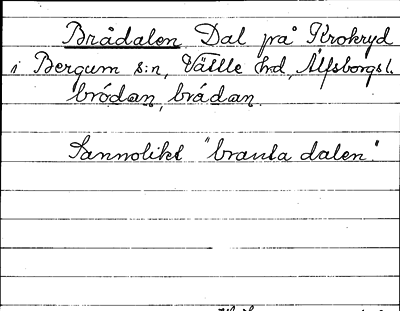 Brådalen Dal på Krokryd
i Bergum s:n, Vättle hrd, Älfsborgs l.
bródan, brádan.
Sannolikt "branta dalen".